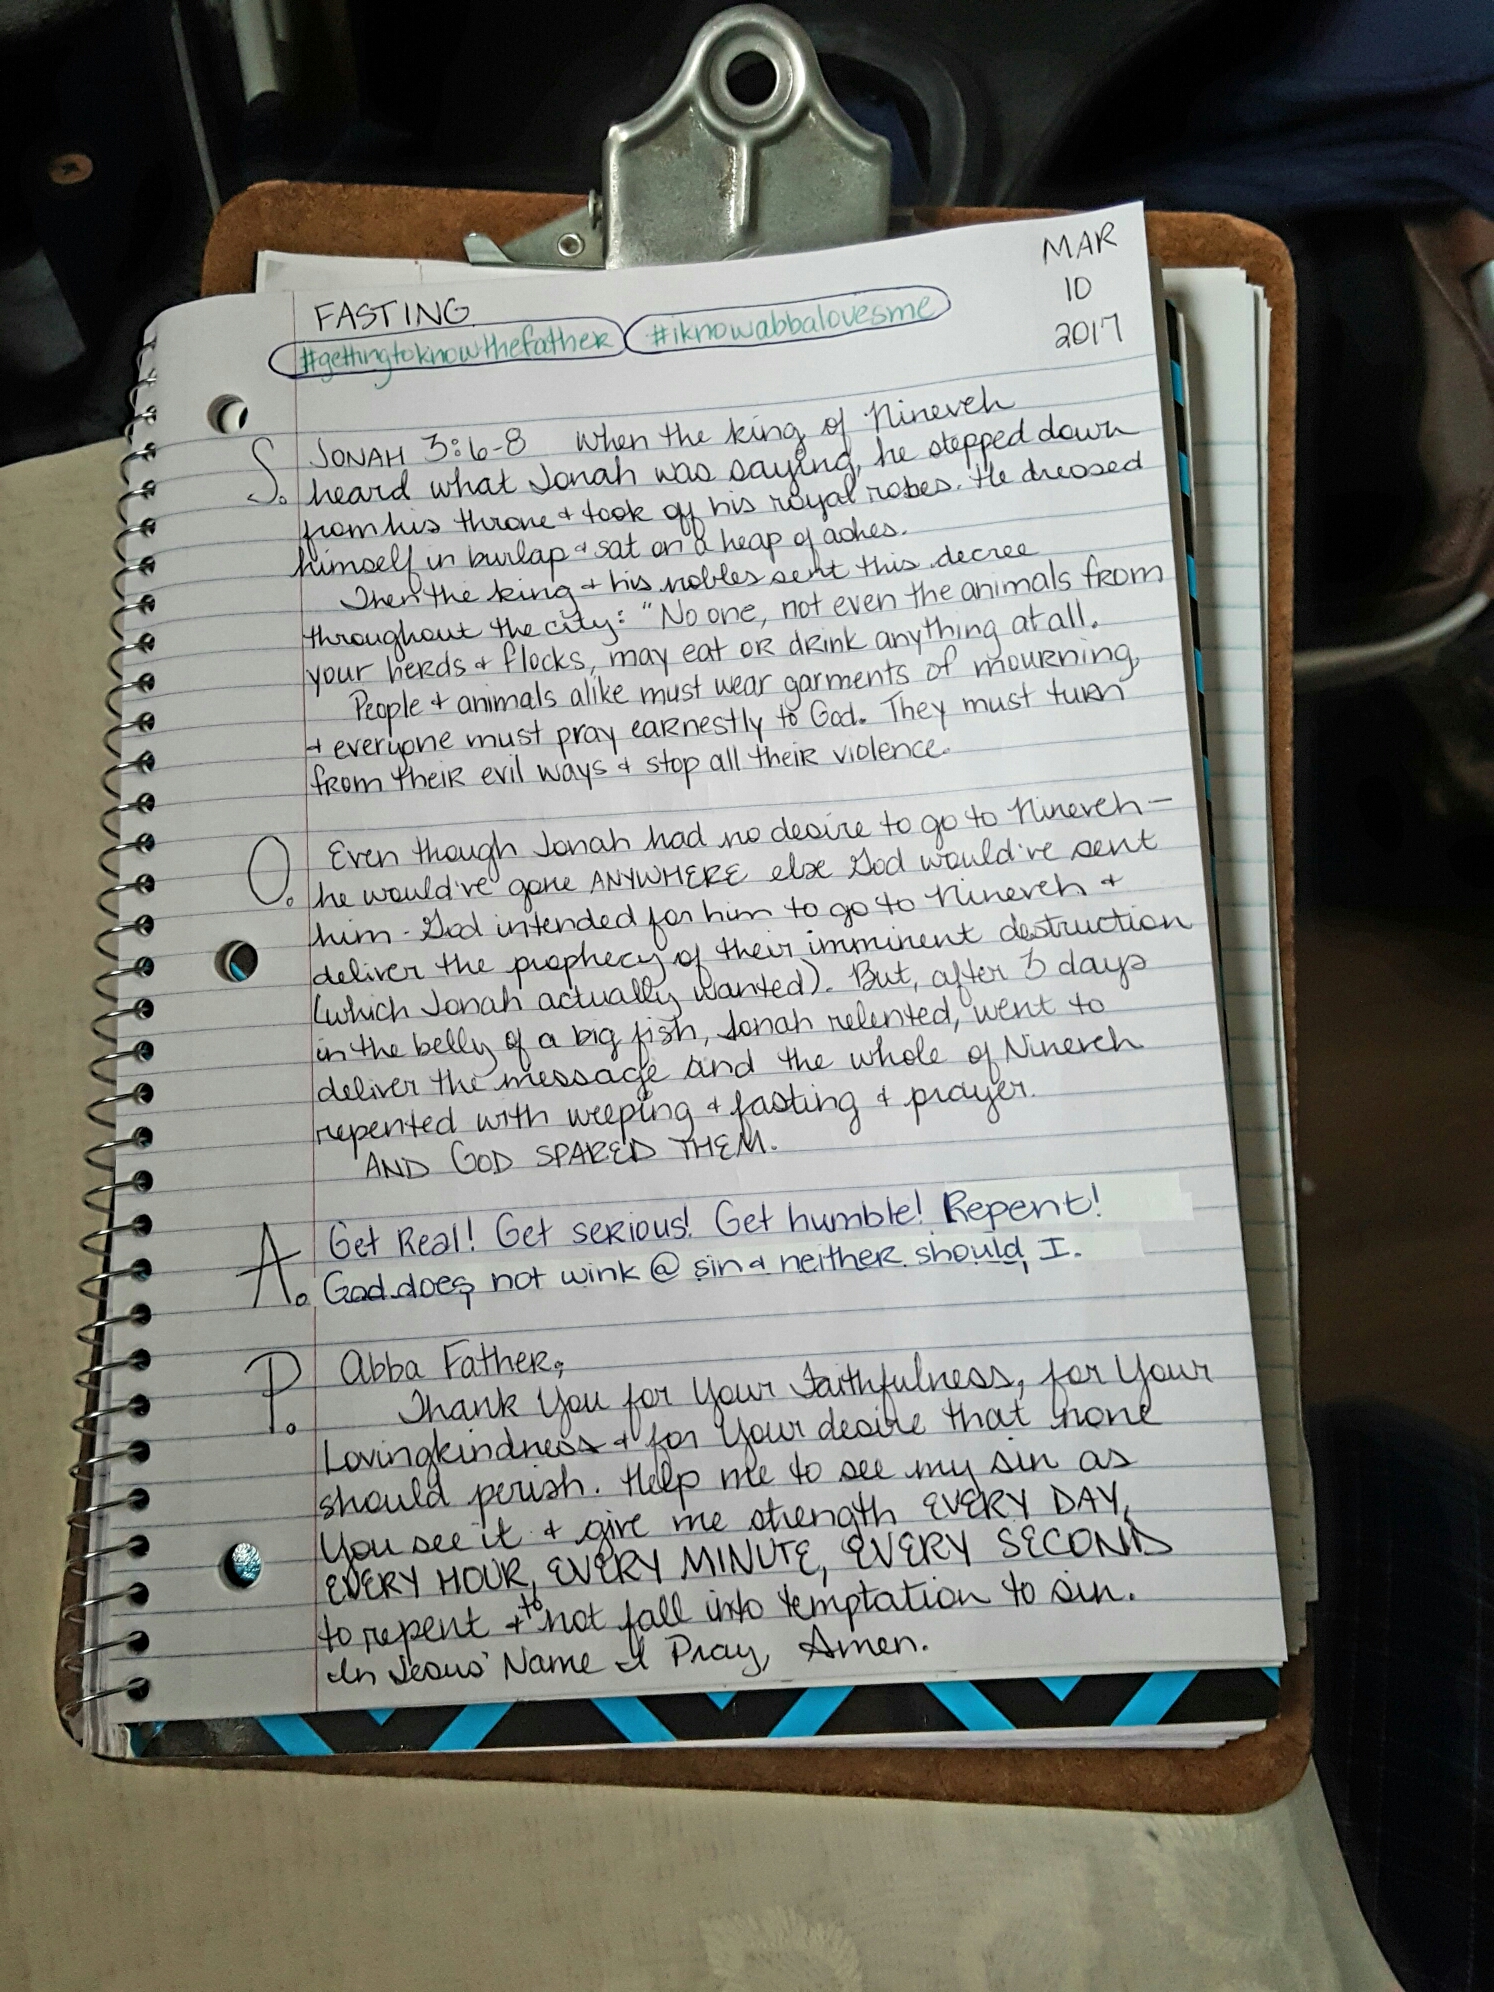 MAR
10
2017
FASTING
#gettingtoknowthefather #iknowabbalovesme
S. JONAH 3:6-8 When the king of Nineveh
heard what Jonah was saying, he stepped down
from his throne & took off his royal robes. He dressed
himself in burlap & sat on a heap of ashes.
Then the king & his nobles sent this decree
throughout the city: "No one, not even the animals from
your herds & flocks, may eat OR dRink anything at all.
People & animals alike must wear garments of mourning,
& everyone must pray eaRnestly to God. They must turn
from their evil ways & stop all their violence.
O. Even though Jonah had no desire to go to Nineveh —
he would've gone ANYWHERE else God would've sent
him - God intended for him to go to Nineveh &
deliver the prophecy of their imminent destruction
(which Jonah actually wanted). But, after 3 days
in the belly of a big fish, Jonah relented, went to
deliver the message and the whole of Nineveh
repented with weeping & fasting & prayer.
AND GOD SPARED THEM.
A. Get Real! Get serious! Get humble! Repent!
God does not wink @ sin & neither should I.
P. Abba Father,
Thank You for Your Faithfulness, for Your
Lovingkindness & for Your desire that none
should perish. Help me to see my sin as
You see it & give me strength EVERY DAY,
EVERY HOUR, EVERY MINUTE, EVERY SECOND
to repent & to not fall into temptation to sin.
In Jesus' Name I Pray, Amen.